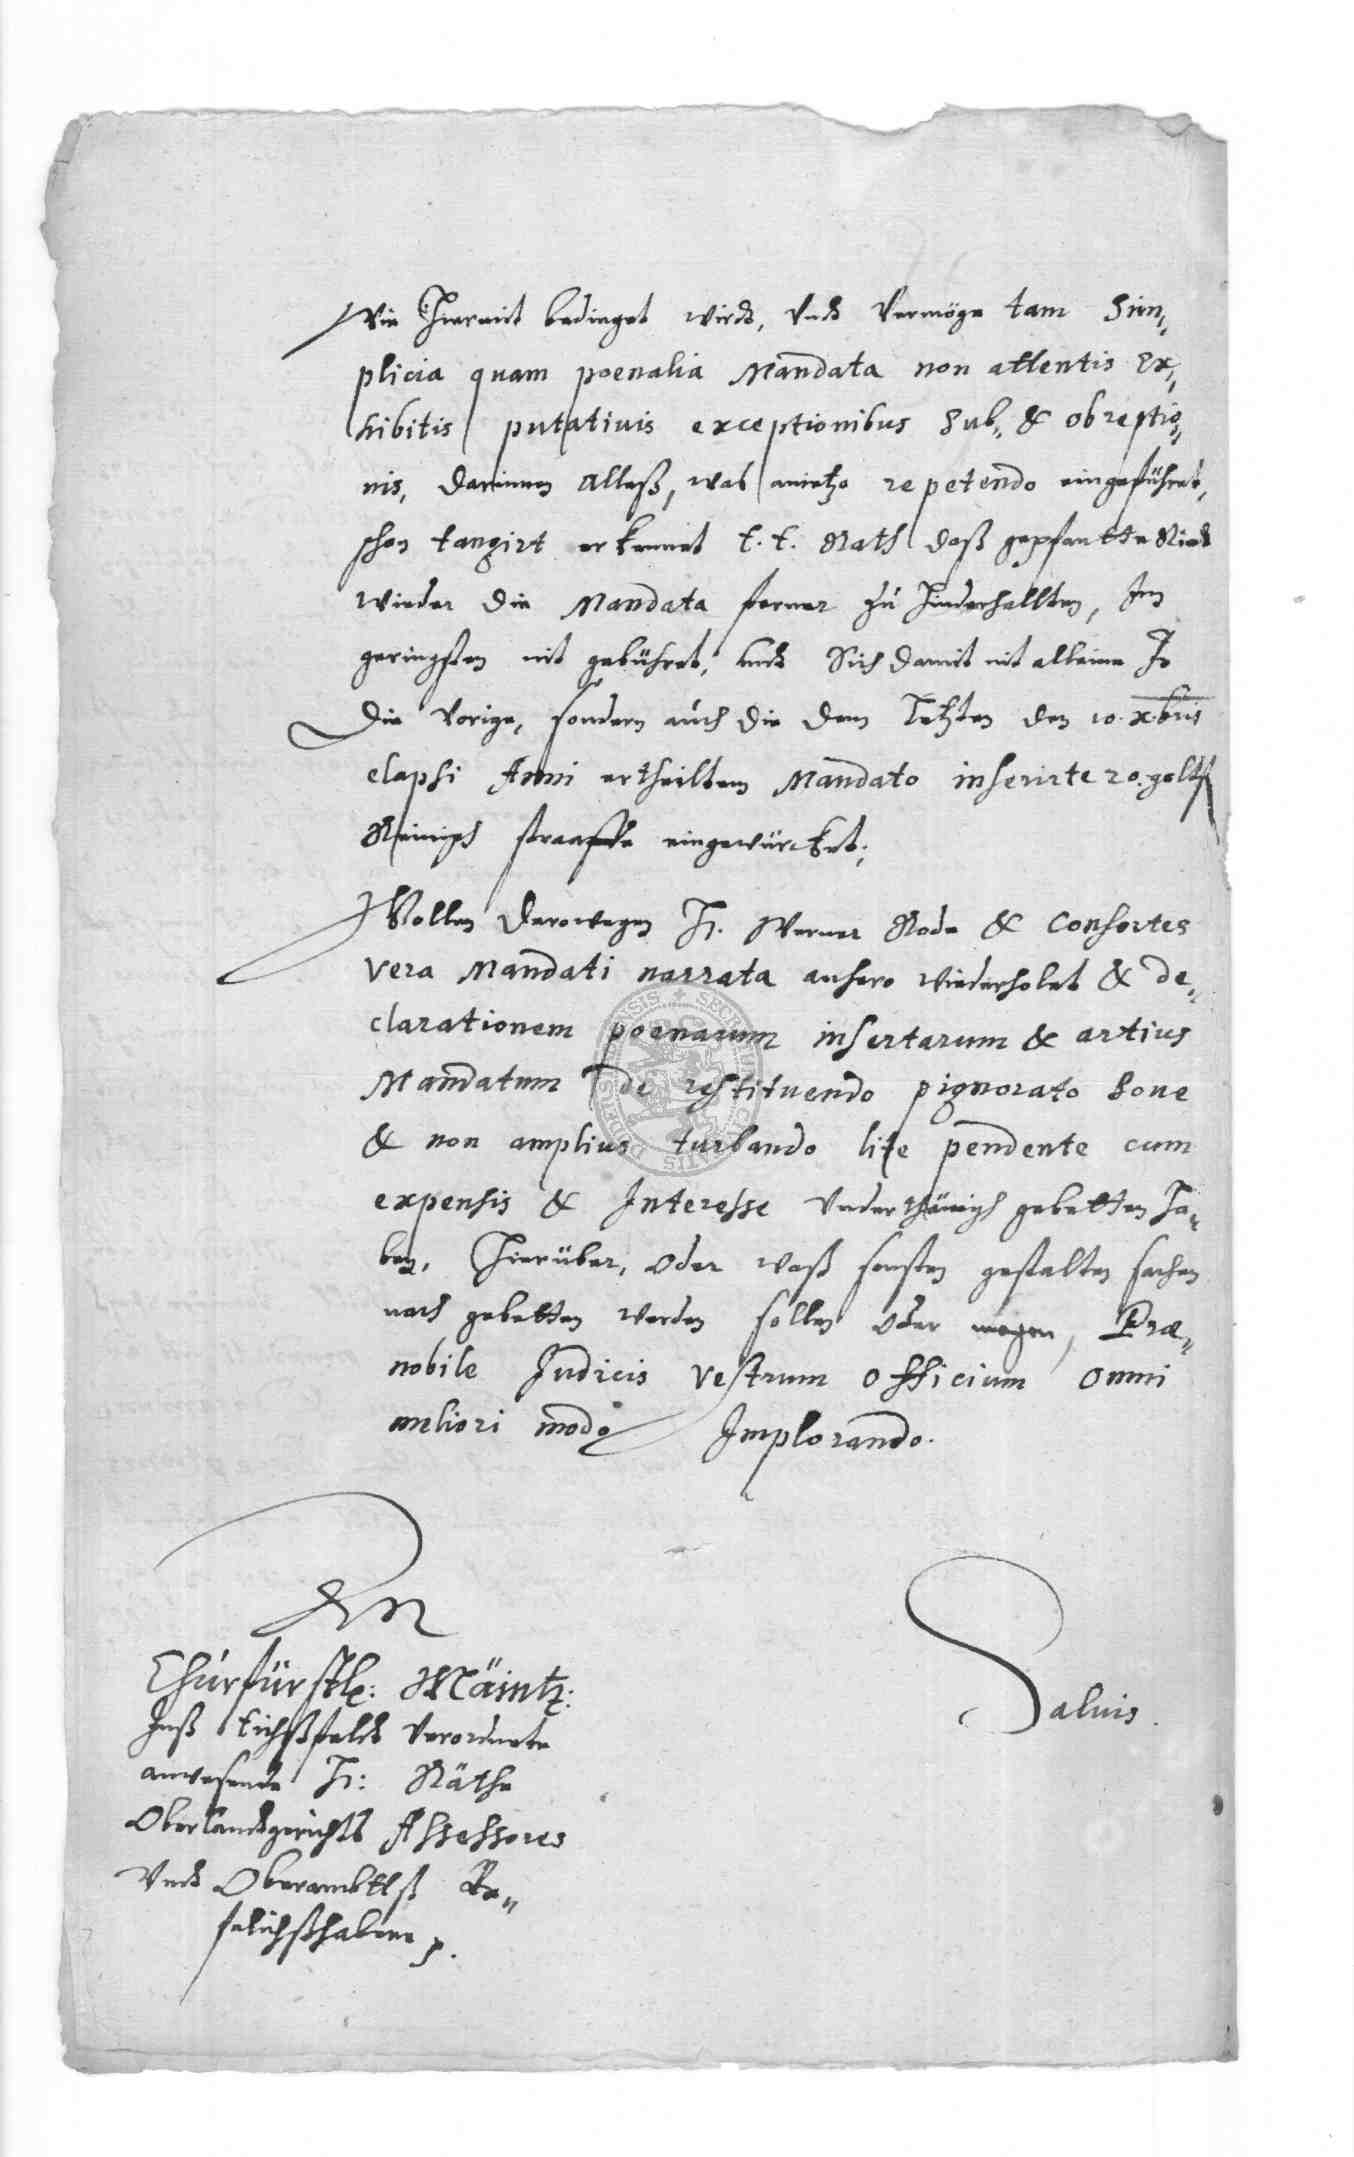 Wie Hiermit bedinget wirdt, Undt Vermöge tam Sim„
plicia quam poenalia Mandata non attentis Ex„
hibitis putativis exceptionibus Sub„ & obreptio„
nis, darinnen Alleß, was anietzo repetendo eingeführet,
schon tangirt erkennet t. t. Rath daß gepfantte Rindt
wieder die Mandata ferner zu hinderhallten, Im
geringsten nit gebühret, undt Sich damit nit alleine In
die Vorige, sondern auch die dem letzten den 10. Xbris
elapsi Anni ertheiltem Mandato inserirte 20. goltfl
Reinisch straaffe eingewürcket;
Wollen derowegen H. Werner Rode & Consortes
vera Mandati narrata anhero wiederholet & de„
clarationem poenarum insertarum & artius
Mandatum de restituendo pignorato bove
& non amplius turbando lite pendente cum
expensis & Interesse Underthänigh gebetten ha„
ben, Hierüber, oder waß sonsten gestalten sachen
nach gebetten werden sollen oder mogen, Præ„
nobile Judicis vestrum officium omni
meliori modo Implorando.
An
Churfürstl: Mäintz:
Inß Eichßfeldt Verordnete
anwesende H: Räthe
Oberlandtgerichts Assessores
Undt Oberambtß Be„
felichßhabere p.
Salvis.
SECRETUM CIVITATIS DUDERSTADENSIS